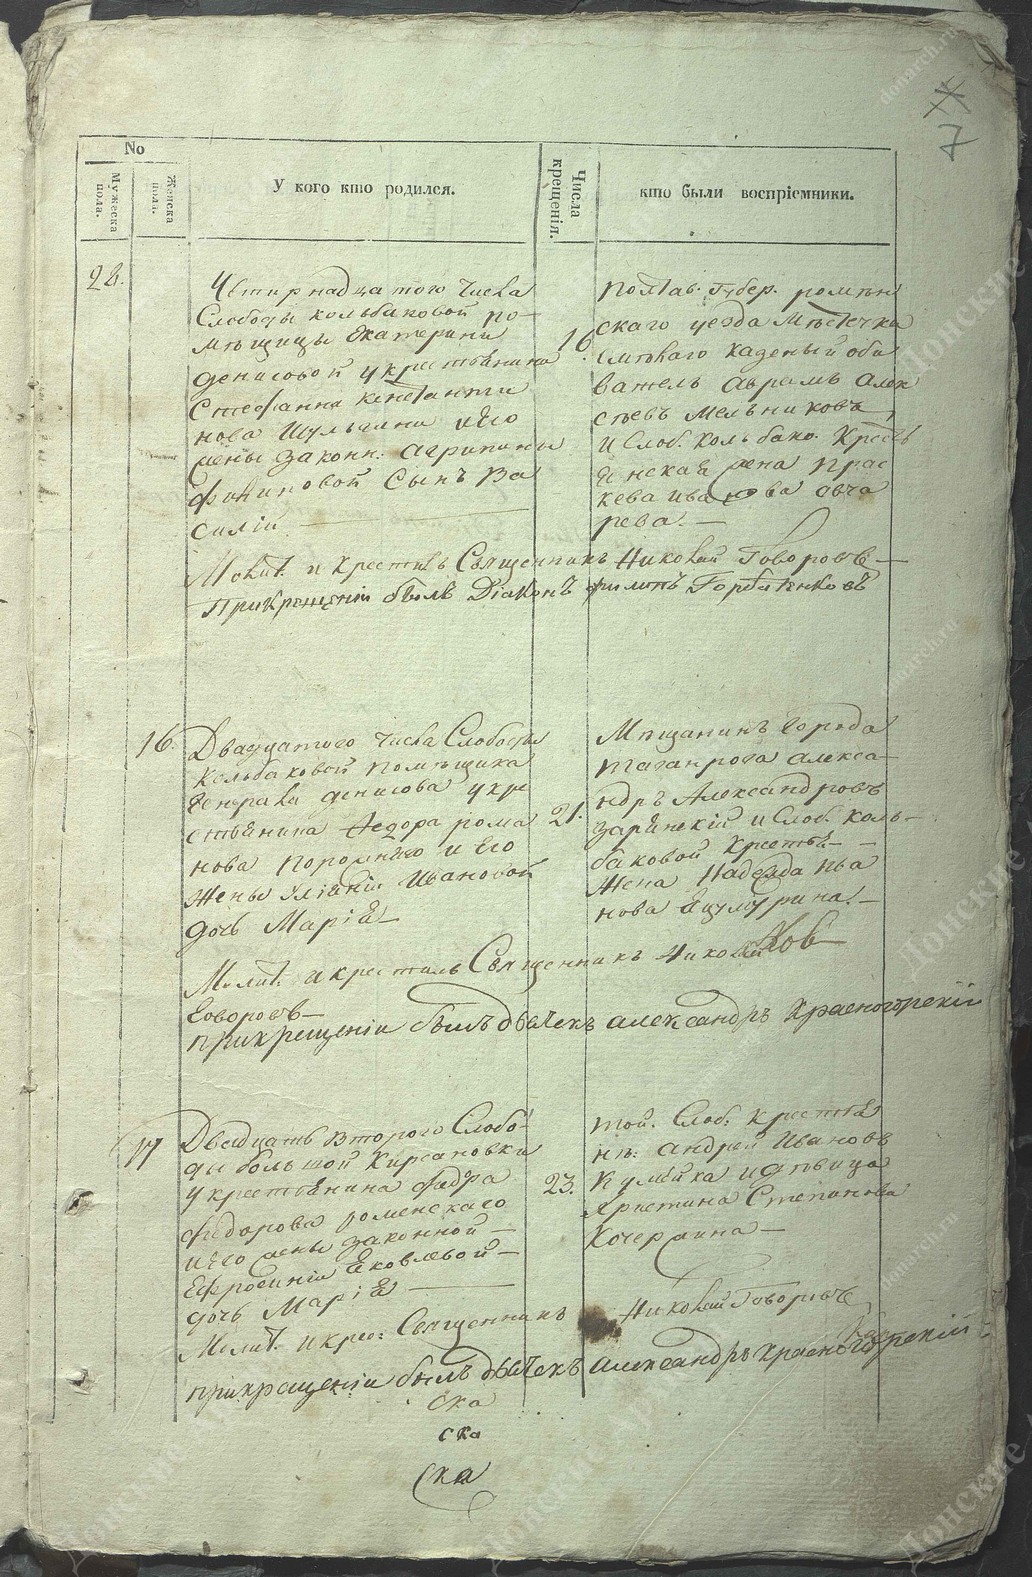 7
No
Мужеска пола.
Женска пола.
У кого кто родился.
Числа крещенія.
кто были воспріемники.
22.
Четирнадцатого Числа
Слободы кольбаковой по-
мѣщицы Екатерины
денисовой у крестьянина
Стефанна константи
нова Шульгини и его
жены законн: агрипины
филиповой Сынъ Ва
силій
16.
Полтав. Губер. роменъ
скаго уезда Мѣстечка
Смѣлаго казеный оби
ватель Аврамъ Алек
сѣевъ Мельниковъ,
и Слоб. кольбако. Кресть
янская жена Прас
кева иванова овча
рева. —
Молит. и крестилъ Священникъ Николай Говоровъ —
При крещеніи былъ Діаконъ филипъ Горбатенковъ
16.
Двадцатого Числа Слободы
Кольбаковой помѣщика
Генерала денисова у кре
стьянина Федора рома
нова и его
Жены Ивановой
дочь Марія
21.
Мѣщанинъ города
таганрога алекса
ндръ Александровъ
и Слоб. коль-
баковой Крестья —
Жена Надежда ива
нова
Молит. и крестилъ Священникъ Николай
Говоровъ —
при крещеніи былъ дьячекъ александръ красногорскій
17
Двадцать второго Слобо-
ди большой Кирсановки
у крестьянина федора
федорова роменскаго
и его жены законной —
Ефросиніи Яковлевой —
дочь Марія —
23.
той. Слоб: крестья
нъ: андрей Ивановъ
и дѣвица
Христина Степанова
—
Молит. и крес: Священникъ Николай Говоровъ
при крещеніи былъ дьячекъ александръ красногорскій
ска
ска
Ска
donarch.ru
Донские